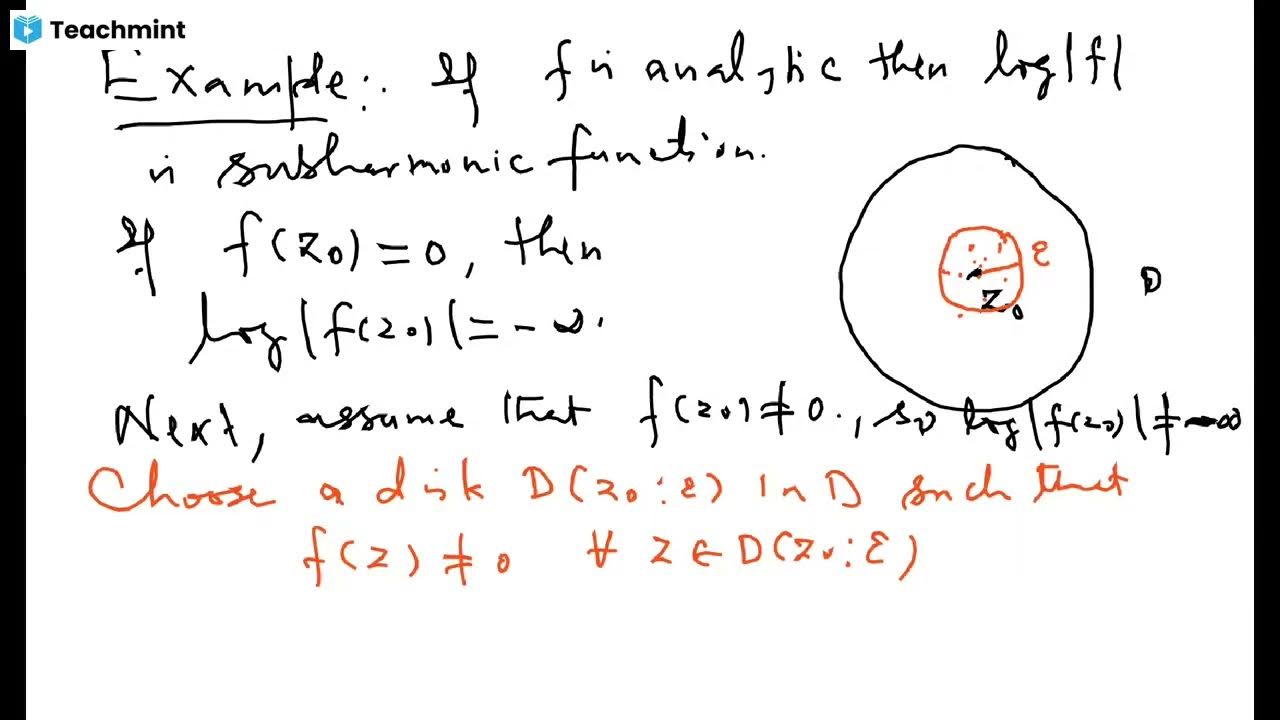 Teachmint
Example: If f is analytic then log|f|
is subharmonic function.
If f(z₀) = 0, then
log|f(z₀)| = -∞.
Next, assume that f(z₀) ≠ 0, so log|f(z₀)| ≠ -∞
Choose a disk D(z₀:ε) in D such that
f(z) ≠ 0 ∀ z ∈ D(z₀:ε)
ε
D
z₀